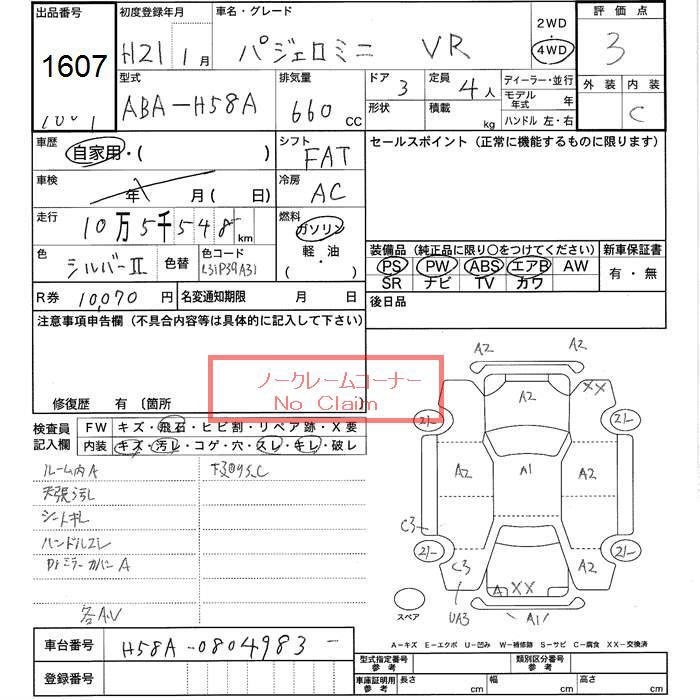 出品番号 初度登録年月 車名・グレード 2WD 評価点
1607 H21 1月 パジェロミニ VR 4WD 3
型式 排気量 ドア 3 定員 4人 ディーラー・並行 外装 内装
ABA-H58A 660 CC 形状 積載 kg モデル年式 年 C
ハンドル 左・右
車歴 自家用・( ) シフト FAT セールスポイント (正常に機能するものに限ります)
車検 年 月( 日) 冷房 AC
走行 10万5千548 km 燃料 ガソリン
軽・油
( )
色 シルバーII 色替 色コード
装備品 (純正品に限り○をつけてください) 新車保証書
PS PW ABS エアB AW 有・無
SR ナビ TV カワ
R券 10,070円 名変通知期限 月 日 後日品
注意事項申告欄 (不具合内容等は具体的に記入して下さい)
ノークレームコーナー
No Claim
修復歴 有 〔箇所
検査員 FW キズ・飛石・ヒビ割・リペア跡・X要
記入欄 内装 キズ・汚レ・コゲ・穴・スレ・キレ・破レ
ルーム内A
天張汚レ
シートキレ
ハンドルスレ
Drミラーカバー A
各A.V
A2 A2
A2 XX
21- 21-
A2 A1 A2
C3
21- 21-
C3 A2
A XX
UA3 A1
スペア
A-キズ E-エクボ U-凹み W-補修跡 S-サビ C-腐食 XX-交換済
車台番号 H58A-0804983
登録番号
型式指定番号 参考 類別区分番号 参考
車庫証明用 参考 長さ cm 幅 cm 高さ cm